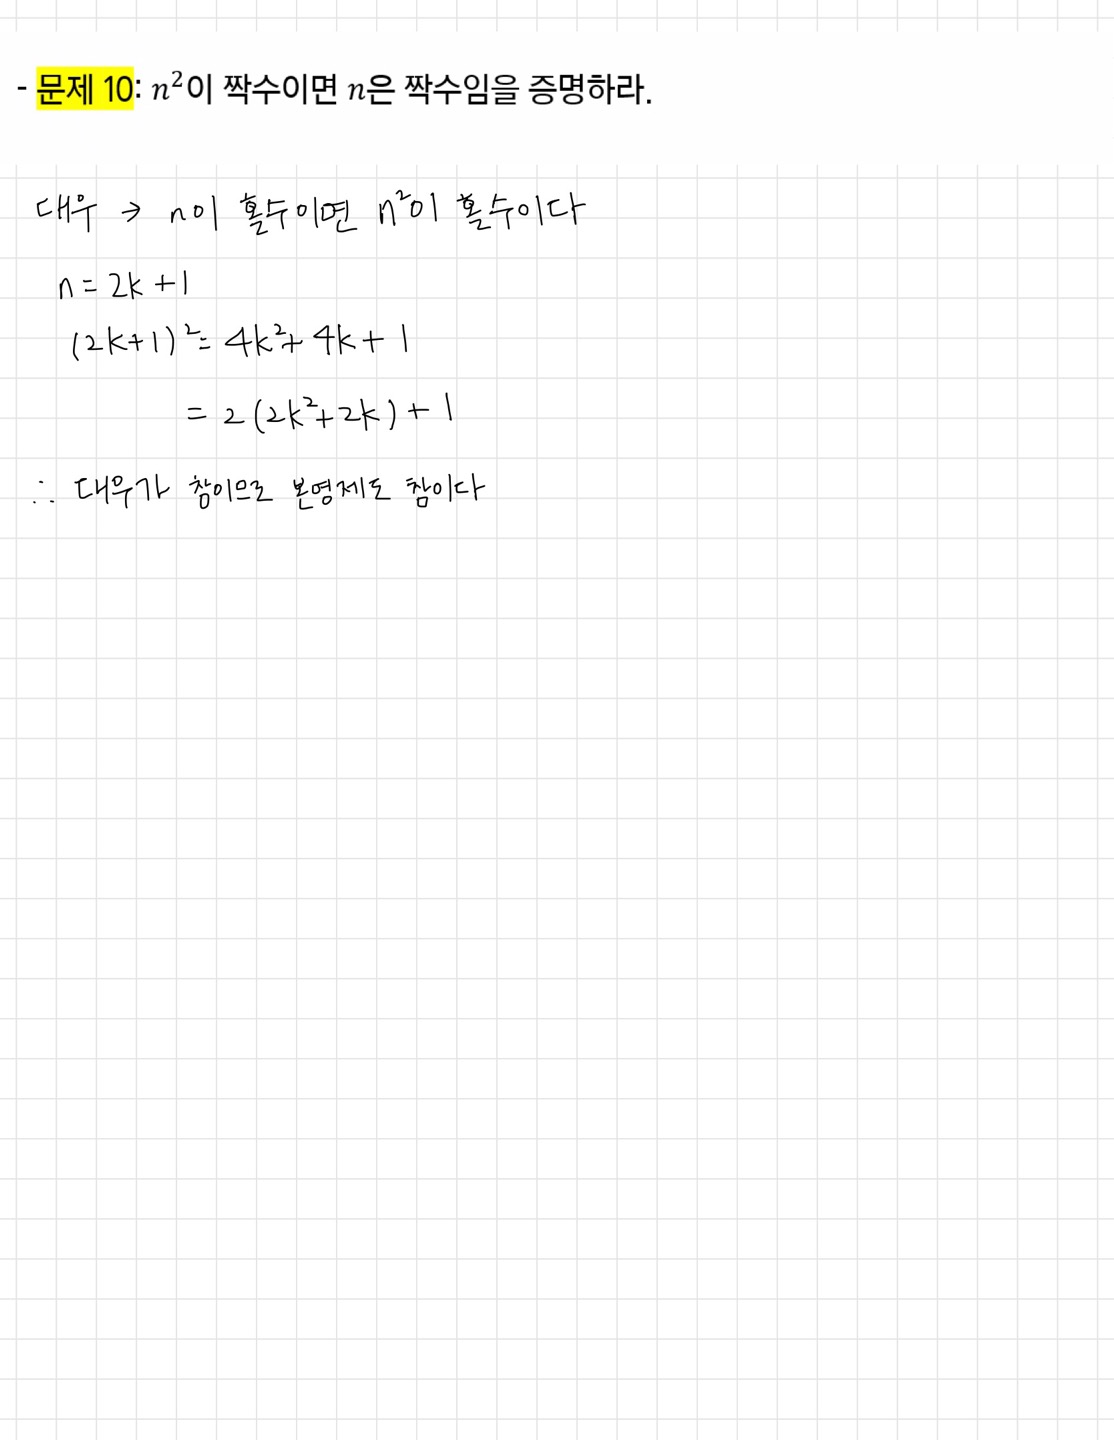 - 문제 10: n²이 짝수이면 n은 짝수임을 증명하라.
대우 → n이 홀수이면 n²이 홀수이다
n = 2k + 1
(2k+1)² = 4k² + 4k + 1
= 2 (2k²+2k) + 1
∴ 대우가 참이므로 본명제도 참이다